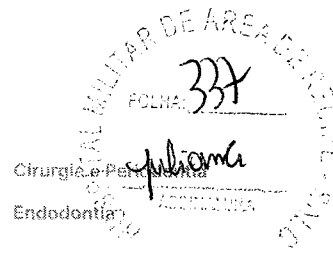 HOSPITAL MILITAR DE AREA DE RECIFE
FOLHA: 337
Juliana
ASSINATURA
Cirurgia e Periodontia
Endodontia